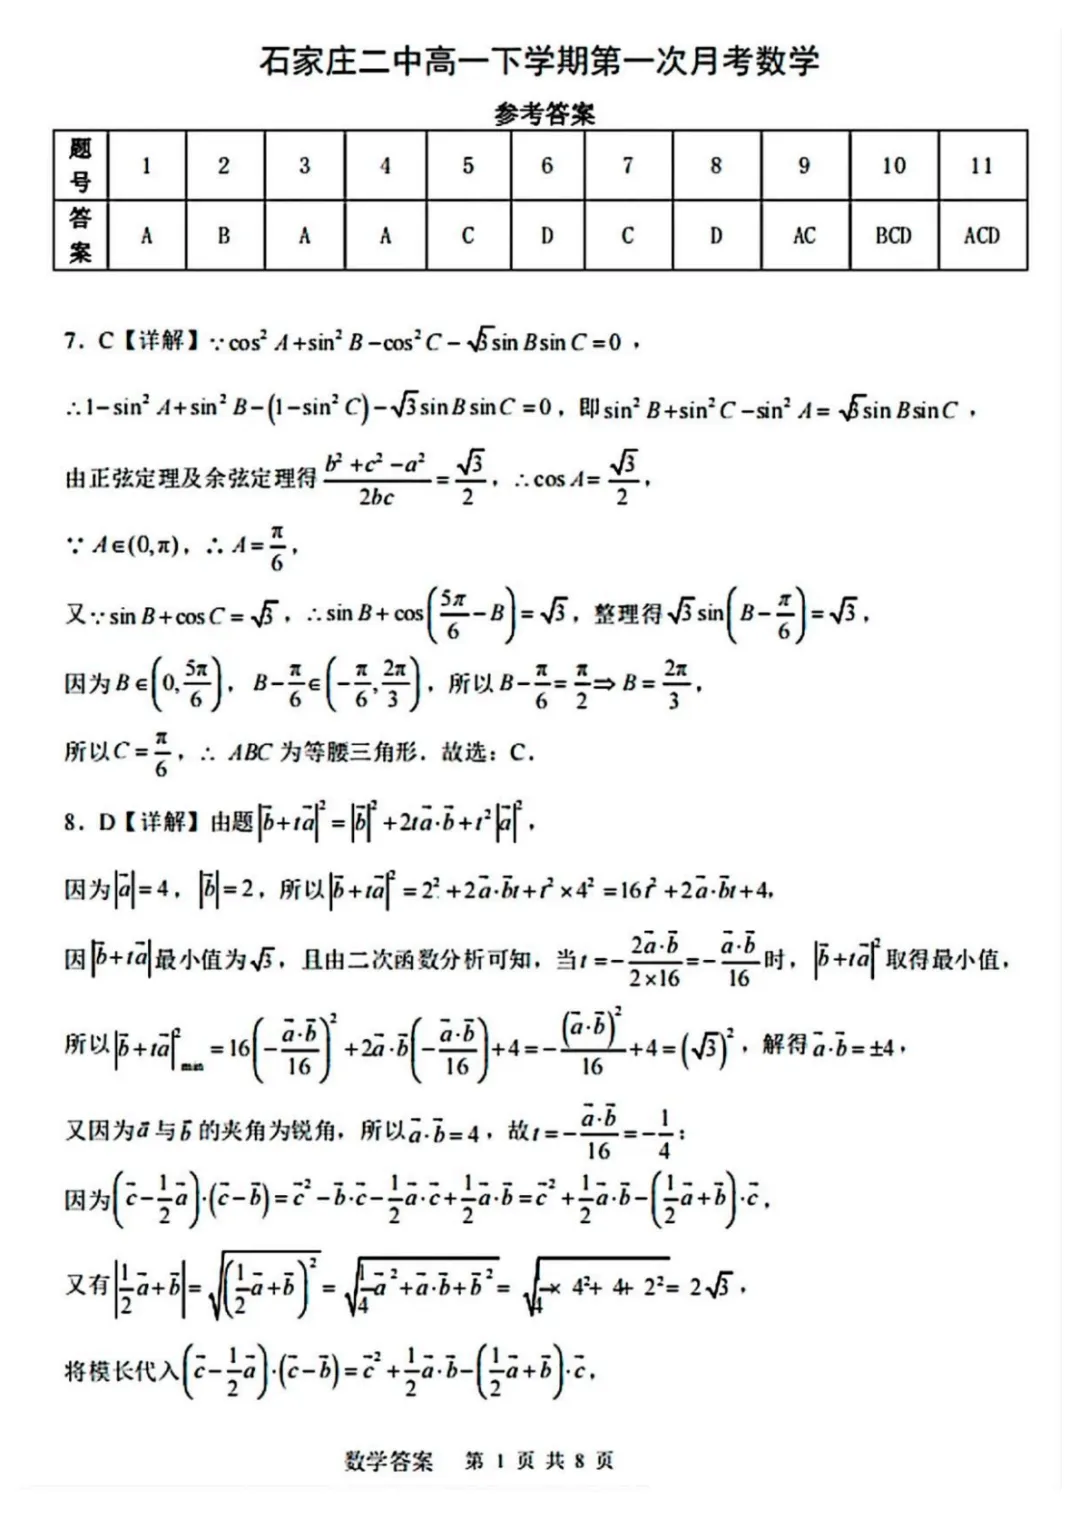 石家庄二中高一下学期第一次月考数学
参考答案
题号 1 2 3 4 5 6 7 8 9 10 11
答案 A B A A C D C D AC BCD ACD
7. C【详解】∵cos² A+sin² B−cos² C−√3 sin B sin C=0，
∴1−sin² A+sin² B−(1−sin² C)−√3 sin B sin C=0，即 sin² B+sin² C−sin² A=√3 sin B sin C，
由正弦定理及余弦定理得 (b²+c²−a²)/(2bc)=√3/2，∴cos A=√3/2，
∵A∈(0,π)，∴A=π/6，
又∵sin B+cos C=√3，∴sin B+cos(5π/6−B)=√3，整理得√3 sin(B−π/6)=√3，
因为B∈(0,5π/6)，B−π/6∈(−π/6,2π/3)，所以B−π/6=π/2⇒B=2π/3，
所以C=π/6，∴ABC 为等腰三角形．故选：C．
8. D【详解】由题|b⃗+ta⃗|²=|b⃗|²+2ta⃗·b⃗+t²|a⃗|²，
因为|a⃗|=4，|b⃗|=2，所以|b⃗+ta⃗|²=2²+2a⃗·b⃗t+t²×4²=16t²+2a⃗·b⃗t+4,
因|b⃗+ta⃗|最小值为√3，且由二次函数分析可知，当t=−(2a⃗·b⃗)/(2×16)=−(a⃗·b⃗)/16时，|b⃗+ta⃗|²取得最小值，
所以|b⃗+ta⃗|²min=16(−(a⃗·b⃗)/16)²+2a⃗·b⃗(−(a⃗·b⃗)/16)+4=−(a⃗·b⃗)²/16+4=(√3)²，解得a⃗·b⃗=±4，
又因为a⃗与b⃗的夹角为锐角，所以a⃗·b⃗=4，故t=−(a⃗·b⃗)/16=−1/4；
因为(c⃗−1/2a⃗)·(c⃗−b⃗)=c⃗²−b⃗·c⃗−1/2a⃗·c⃗+1/2a⃗·b⃗=c⃗²+1/2a⃗·b⃗−(1/2a⃗+b⃗)·c⃗，
又有|1/2a⃗+b⃗|=√((1/2a⃗+b⃗)²)=√(1/4a⃗²+a⃗·b⃗+b⃗²)=√(1/4×4²+4+2²)=2√3，
将模长代入(c⃗−1/2a⃗)·(c⃗−b⃗)=c⃗²+1/2a⃗·b⃗−(1/2a⃗+b⃗)·c⃗，
数学答案 第 1 页 共 8 页